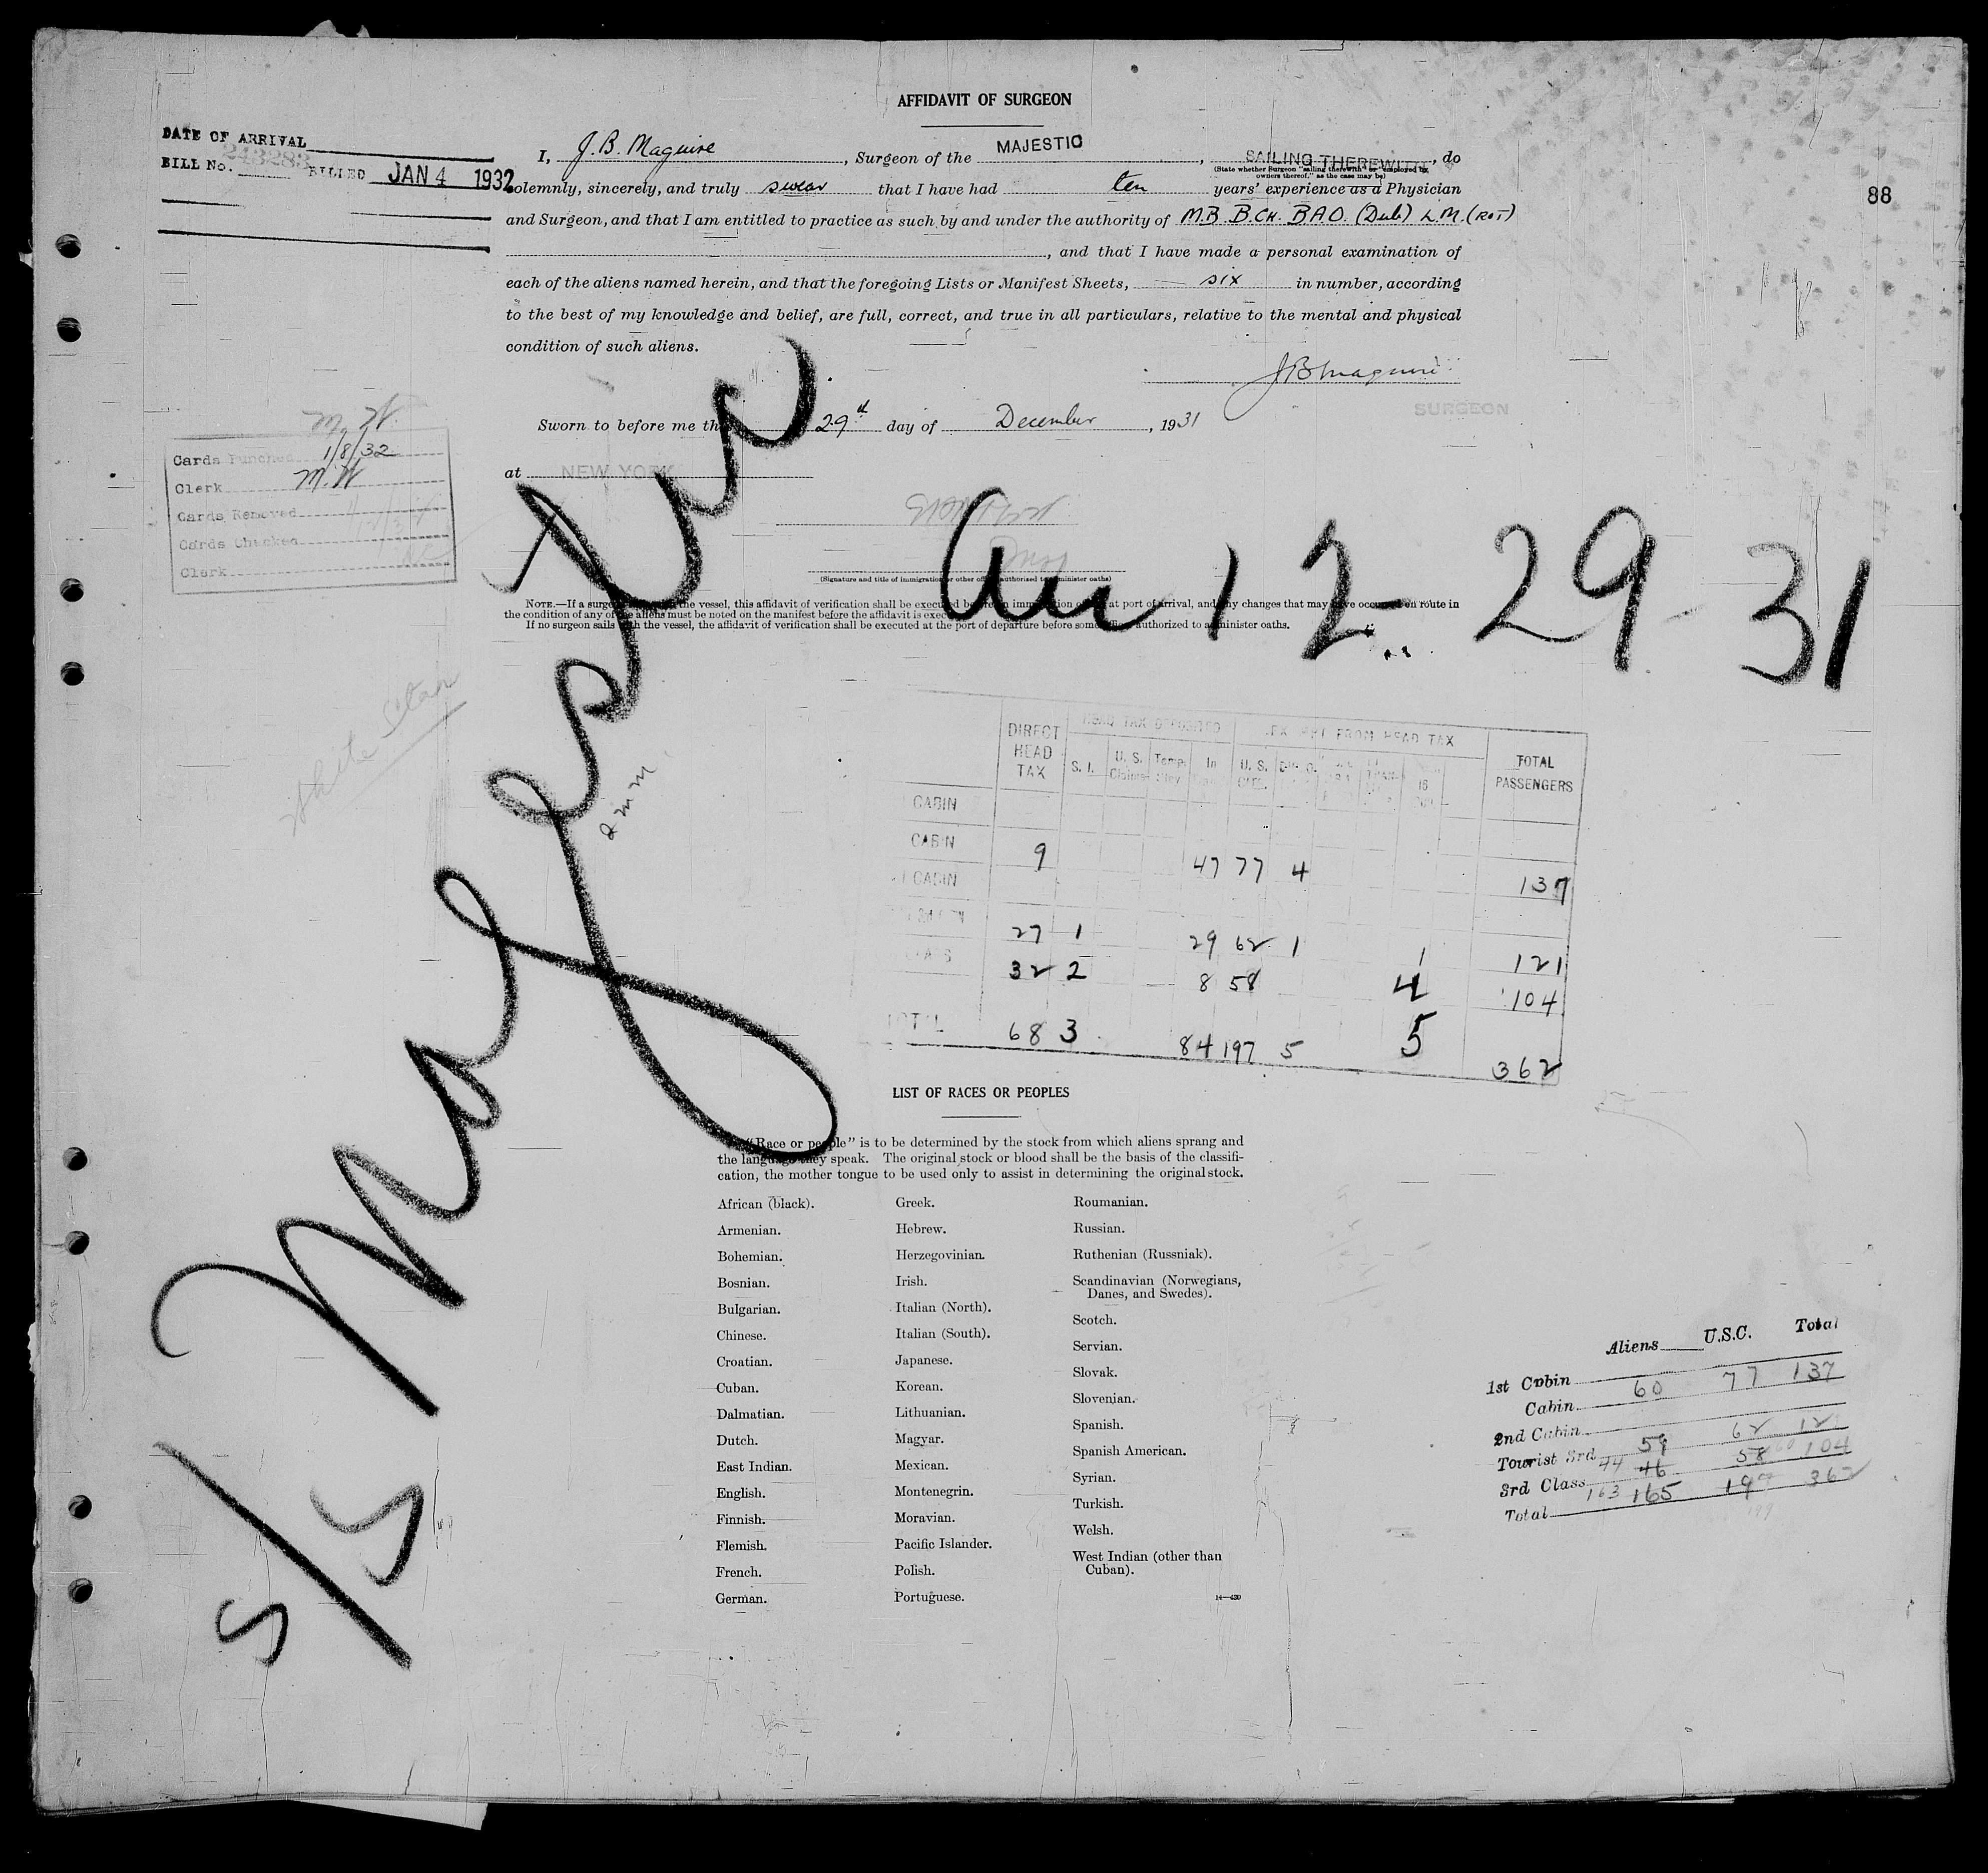 AFFIDAVIT OF SURGEON
DATE OF ARRIVAL
BILL No. 243283 BILLED JAN 4 1932
88
I, J. B. Maguire, Surgeon of the MAJESTIC, SAILING THEREWITH, do
(State whether Surgeon "sailing therewith" or "employed by
owners thereof," as the case may be)
solemnly, sincerely, and truly swear that I have had ten years' experience as a Physician
and Surgeon, and that I am entitled to practice as such by and under the authority of M.B. B.CH. B.A.O. (Dub) L.M. (ROT)
, and that I have made a personal examination of
each of the aliens named herein, and that the foregoing Lists or Manifest Sheets, six in number, according
to the best of my knowledge and belief, are full, correct, and true in all particulars, relative to the mental and physical
condition of such aliens.
J B Maguire
SURGEON
Sworn to before me th 29 day of December, 1931
at NEW YORK
M. W.
Cards Punched 1/8/32
Clerk M.W
Cards Removed
Cards Checked
Clerk
(Signature and title of immigration or other officer authorized to administer oaths)
NOTE.—If a surgeon the vessel, this affidavit of verification shall be executed before an immigration at port of arrival, and any changes that may have occurred en route in
the condition of any of the aliens must be noted on the manifest before the affidavit is executed
If no surgeon sails with the vessel, the affidavit of verification shall be executed at the port of departure before some officer authorized to administer oaths.
Arr 12 29 31
White Star
S/S Majestic
DIRECT HEAD TAX HEAD TAX DEPOSITED EXEMPT FROM HEAD TAX TOTAL PASSENGERS
S. I. U. S. Temp. In U. S. 16
CABIN
CABIN 9 47 77 4 137
CABIN
27 1 29 62 1 1 121
32 2 8 58 4 104
TOTAL 68 3 84 197 5 5 362
LIST OF RACES OR PEOPLES
"Race or people" is to be determined by the stock from which aliens sprang and
the language they speak. The original stock or blood shall be the basis of the classifi-
cation, the mother tongue to be used only to assist in determining the original stock.
African (black).
Armenian.
Bohemian.
Bosnian.
Bulgarian.
Chinese.
Croatian.
Cuban.
Dalmatian.
Dutch.
East Indian.
English.
Finnish.
Flemish.
French.
German.
Greek.
Hebrew.
Herzegovinian.
Irish.
Italian (North).
Italian (South).
Japanese.
Korean.
Lithuanian.
Magyar.
Mexican.
Montenegrin.
Moravian.
Pacific Islander.
Polish.
Portuguese.
Roumanian.
Russian.
Ruthenian (Russniak).
Scandinavian (Norwegians,
Danes, and Swedes).
Scotch.
Servian.
Slovak.
Slovenian.
Spanish.
Spanish American.
Syrian.
Turkish.
Welsh.
West Indian (other than
Cuban).
14—430
Aliens U.S.C. Total
1st Cabin 60 77 137
Cabin
2nd Cabin
Tourist 3rd 59 62 121
3rd Class 44 46 58 104
Total 163 165 197 362